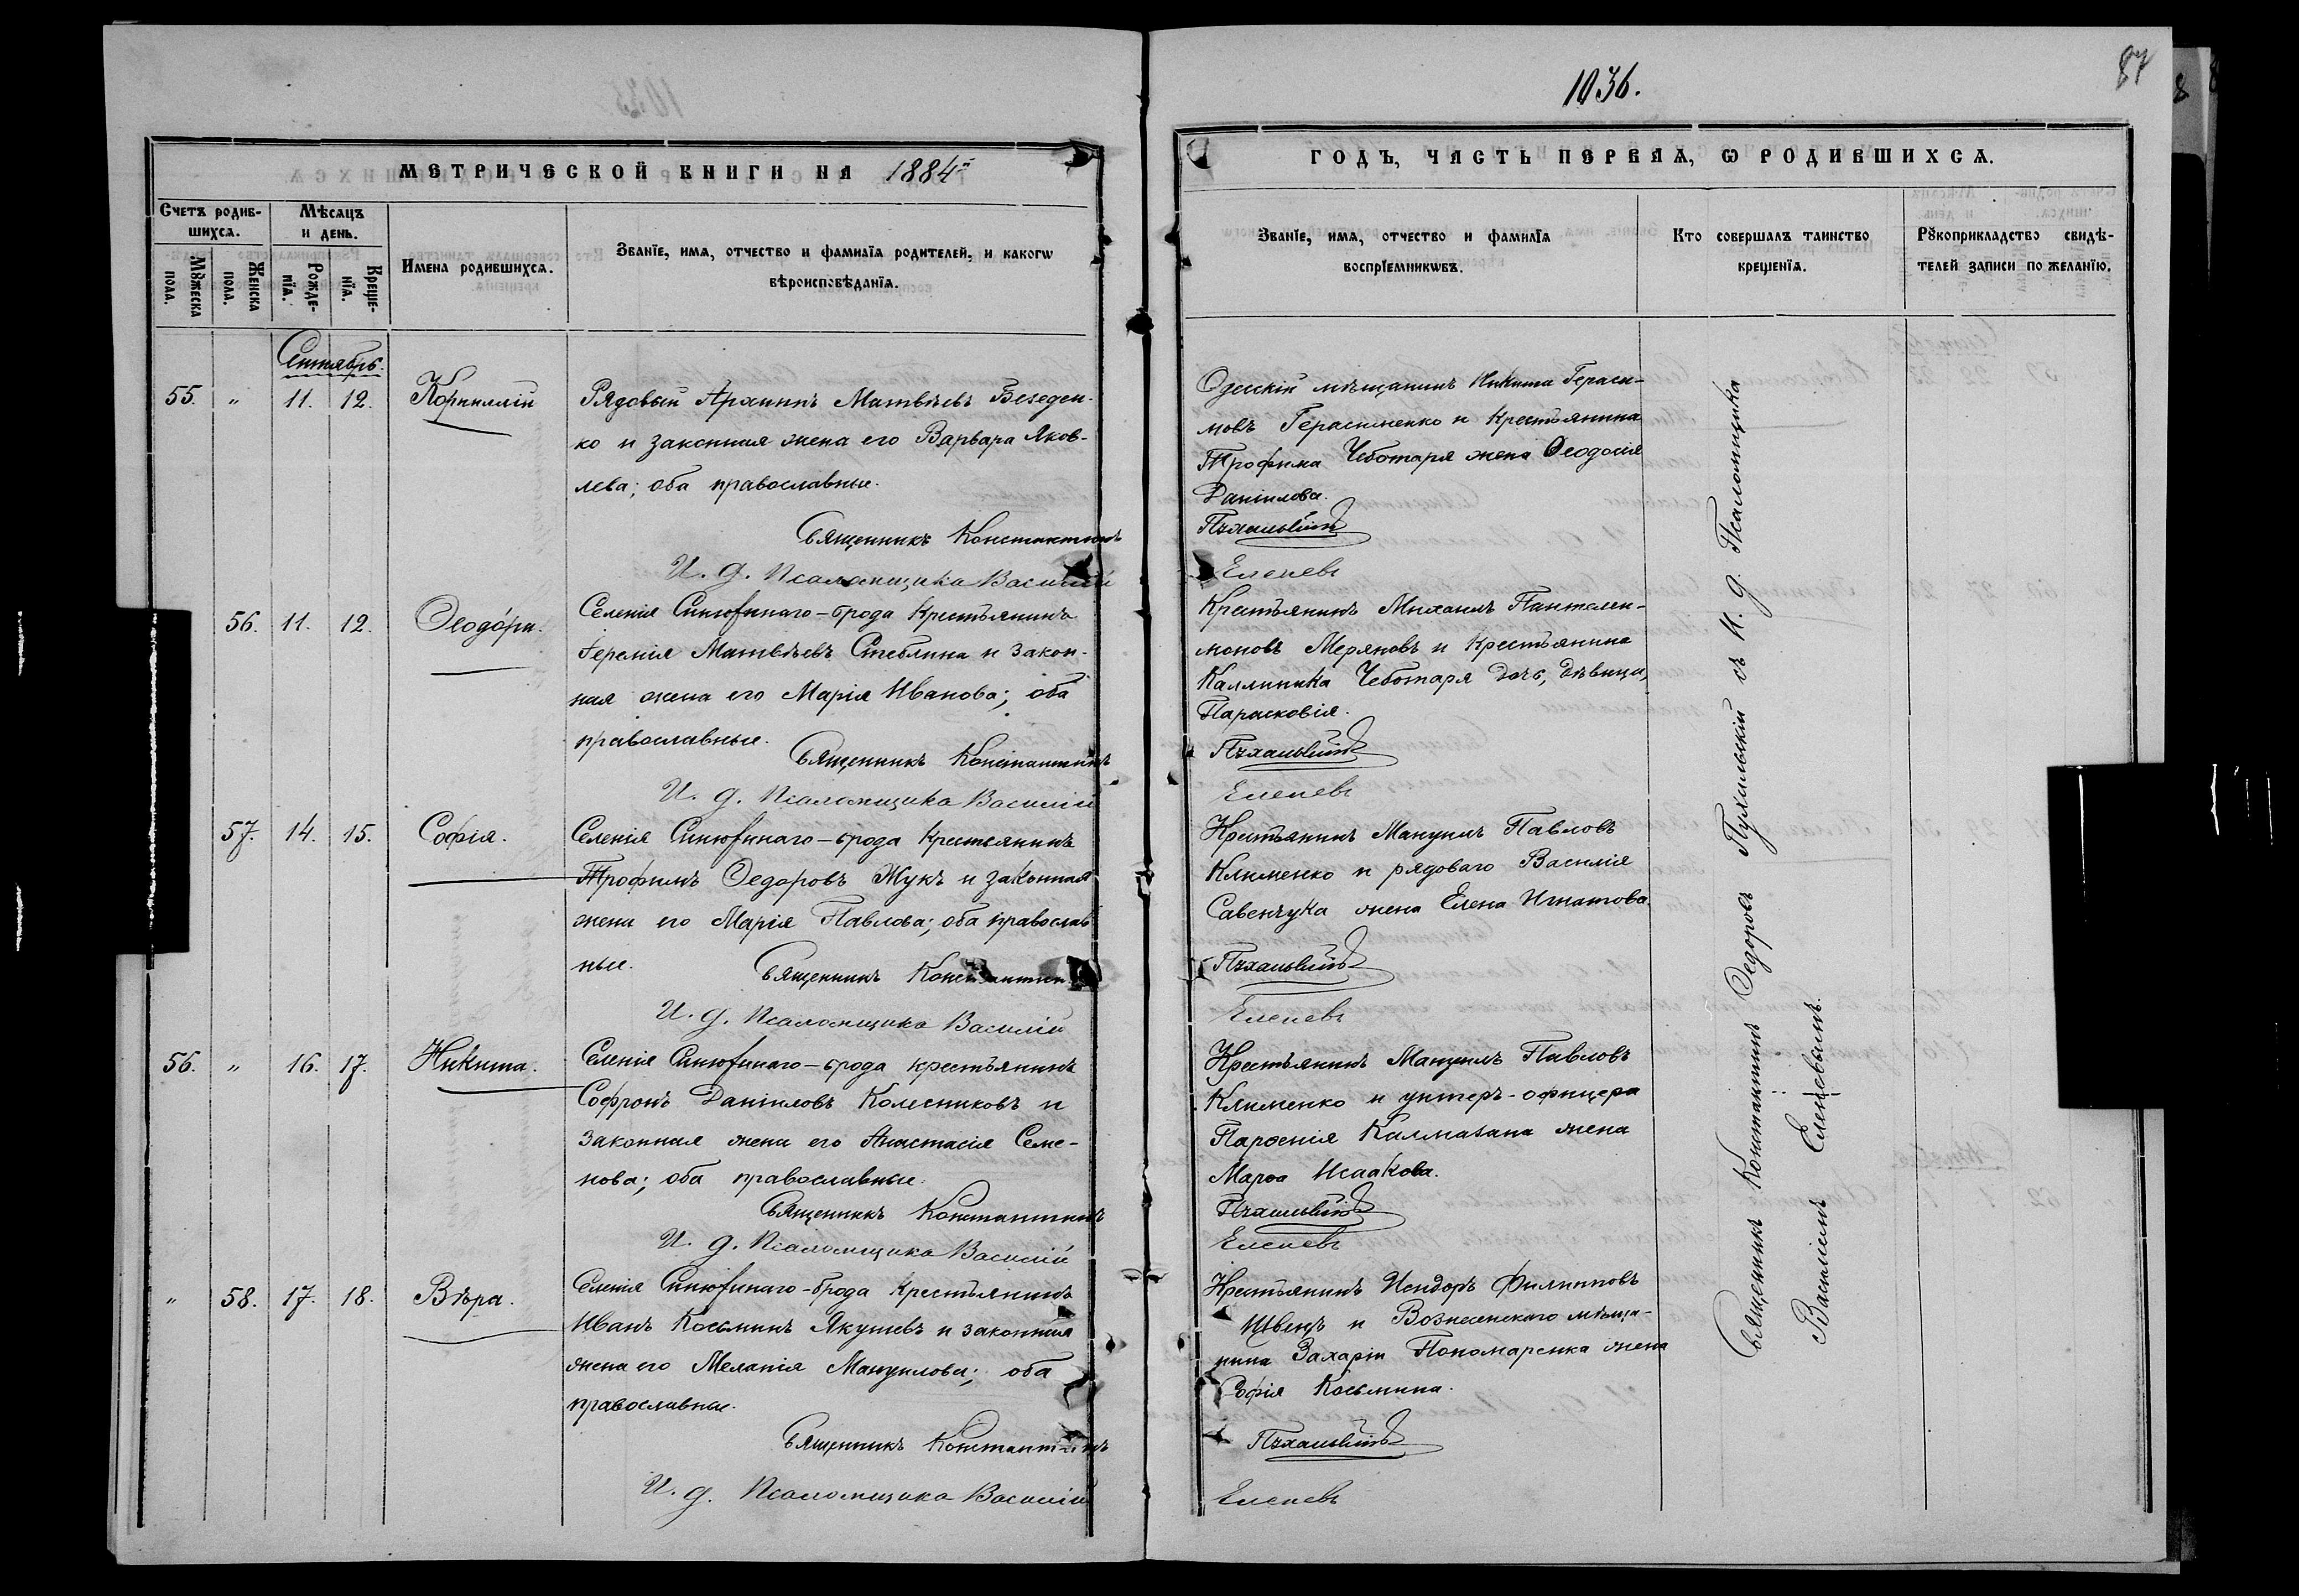 1036.
87
МЕТРИЧЕСКОЙ КНИГИ НА 1884й
ГОДЪ, ЧАСТЬ ПЕРВАЯ, Ѡ РОДИВШИХСѦ.
Счетъ родив-
шихсѧ.
Мѣсяцъ
и день.
Мꙋжеска
пола.
Женска
пола.
Рожде-
нїѧ.
Креще-
нїѧ.
Имена родившихсѧ.
Званїе, имѧ, отчество и фамилїѧ родителей, и какогѡ
вѣроисповѣданїѧ.
Званїе, имѧ, отчество и фамилїѧ
воспрїемникѡвъ.
Кто совершалъ таинство
крещенїѧ.
Рꙋкоприкладство свидѣ-
телей записи по желанїю.
Сентябрь.
55. " 11. 12. Корнилій
Рядовый Архипъ Матвѣевъ Безеден-
ко и законная жена его Варвара Яков-
лева; оба православные.
Священникъ Константинъ
И. д. Псаломщика Василій
Одесскій мѣщанинъ Никита Гераси-
мовъ Герасименко и крестьянина
Трофима Чеботаря жена Ѳеодосія
Даніилова.
Пухальскій
Еленевъ
56. 11. 12. Ѳеодо́ра.
Селенія Синюхинаго-брода крестьянинъ
Іеремія Матвѣевъ Стеблина и закон-
ная жена его Марія Иванова; оба
православные.
Священникъ Константинъ
И. д. Псаломщика Василій
Крестьянинъ Михаилъ Пантелеи-
моновъ Меряновъ и крестьянина
Каллиника Чеботаря дочь, дѣвица,
Парасковія.
Пухальскій
Еленевъ
57. 14. 15. Софія.
Селенія Синюхинаго-брода крестьянинъ
Трофимъ Ѳедоровъ Жукъ и законная
жена его Марія Павлова; оба православ
ные.
Священникъ Константинъ
И. д. Псаломщика Василій
Крестьянинъ Мануилъ Павловъ
Клименко и рядоваго Василія
Савенчука жена Елена Игнатова.
Пухальскій
Еленевъ
56. " 16. 17. Никита.
Селенія Синюхинаго-брода крестьянинъ
Софронъ Даніиловъ Колесниковъ и
законная жена его Анастасія Семе-
нова; оба православные.
Священникъ Константинъ
И. д. Псаломщика Василій
Крестьянинъ Мануилъ Павловъ
Клименко и унтеръ-офицера
Парѳенія Калмазана жена
Марѳа Исаакова.
Пухальскій
Еленевъ
" 58. 17. 18. Вѣра.
Селенія Синюхинаго-брода крестьянинъ
Иванъ Косьминъ Якушевъ и законная
жена его Меланія Мануилова; оба
православные.
Священникъ Константинъ
И. д. Псаломщика Василій
Крестьянинъ Исидоръ Филипповъ
Швецъ и Вознесенскаго мѣща-
нина Захарія Пономаренка жена
Софія Косьмина.
Пухальскій
Еленевъ
Священникъ Константинъ Ѳедоровъ Пухальскій съ И. д. Псаломщика
Василіемъ Еленевымъ.